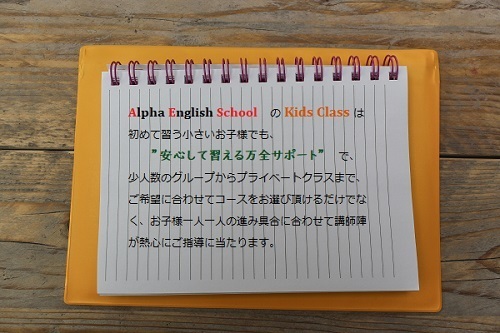 Alpha English School の Kids Class は
初めて習う小さいお子様でも、
”安心して習える万全サポート” で、
少人数のグループからプライベートクラスまで、
ご希望に合わせてコースをお選び頂けるだけでな
く、お子様一人一人の進み具合に合わせて講師陣
が熱心にご指導に当たります。